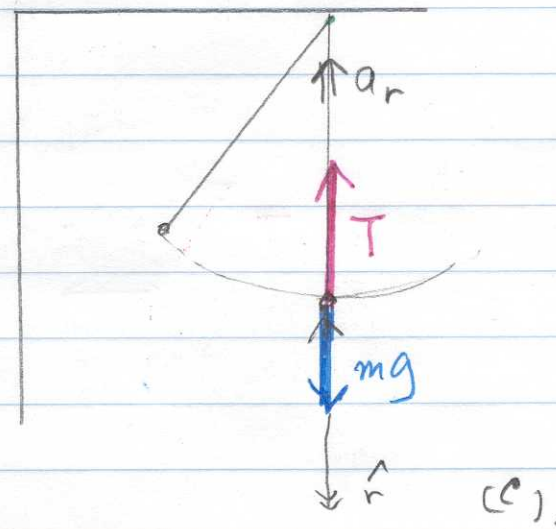 a_r
T
mg
r̂
(c)